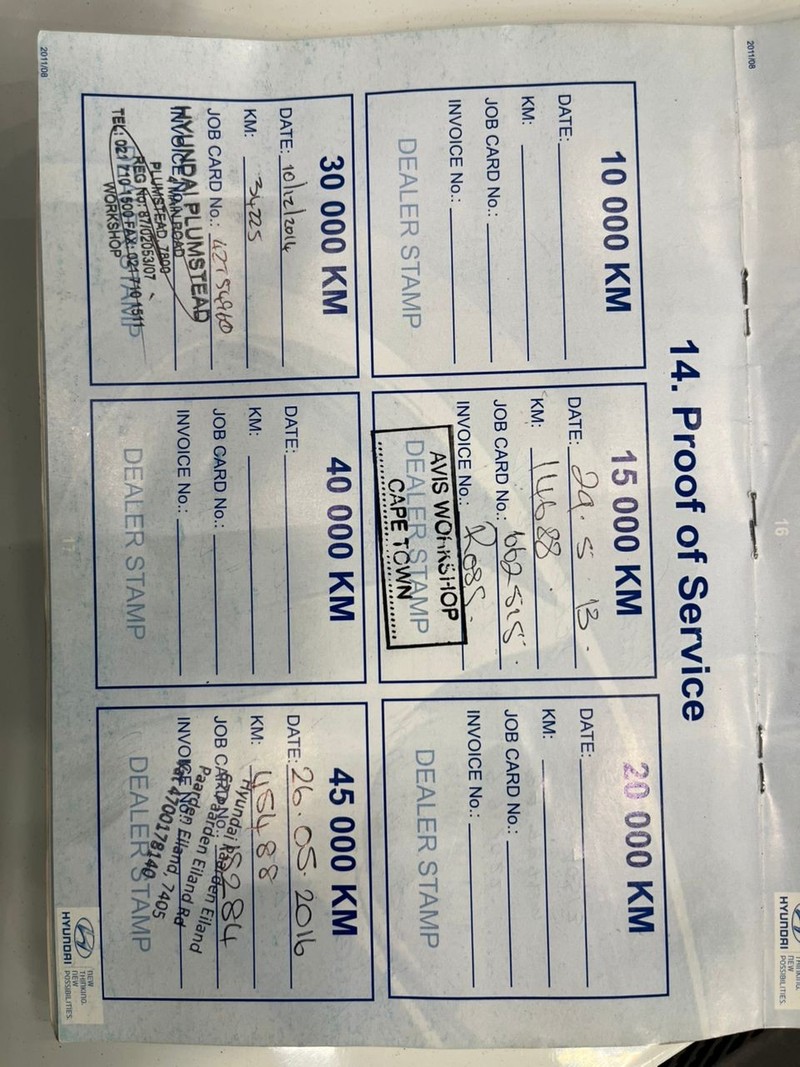 14. Proof of Service
10 000 KM
DATE:
KM:
JOB CARD No.:
INVOICE No.:
DEALER STAMP
15 000 KM
DATE: 29.5.13.
KM: 14688.
JOB CARD No.: 662515.
INVOICE No.:
DEALER STAMP
AVIS WORKSHOP
CAPE TOWN
20 000 KM
DATE:
KM:
JOB CARD No.:
INVOICE No.:
DEALER STAMP
30 000 KM
DATE: 10/12/2014
KM: 34225
JOB CARD No.:
INVOICE No.:
DEALER STAMP
HYUNDAI PLUMSTEAD
4 MAIN ROAD
PLUMSTEAD, 7800
REG No: 87/02053/07
TEL: 021 710 1500 FAX: 021 710 1511
WORKSHOP
40 000 KM
DATE:
KM:
JOB CARD No.:
INVOICE No.:
DEALER STAMP
45 000 KM
DATE: 26.05.2016
KM: 45488
JOB CARD No.:
INVOICE No.:
DEALER STAMP
Hyundai Paarden Eiland
Paarden Eiland Rd
Paarden Eiland, 7405
4700178140
17
2011/08
HYUNDAI
NEW
THINKING.
NEW
POSSIBILITIES.
16
2011/08
HYUNDAI